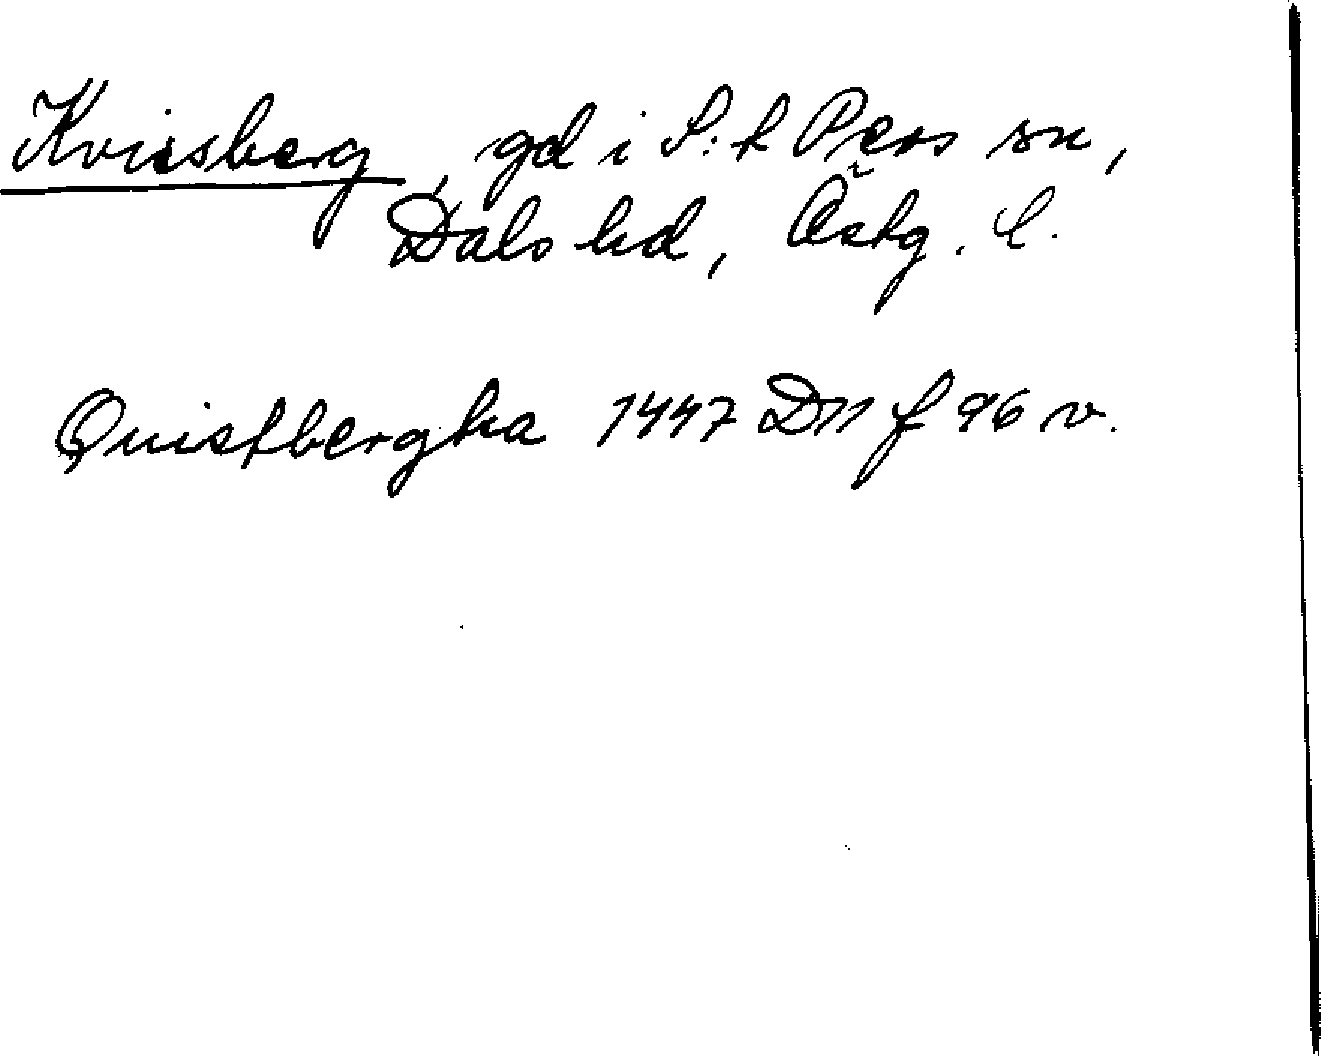 Kvissberg, gd i S:t Pers sn,
Dals hd, Östg. l.
Quistbergha 1447 D11 f 96 v.